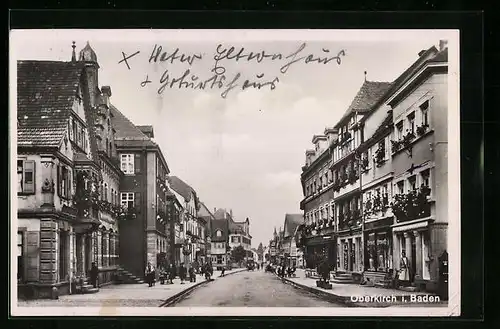 × Vater Elternhaus
+ Geburtshaus
Oberkirch i. Baden